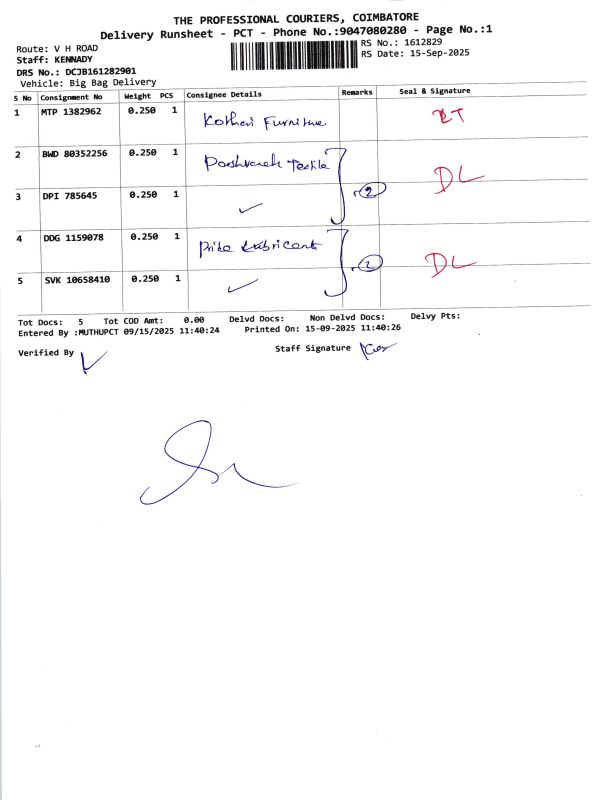 THE PROFESSIONAL COURIERS, COIMBATORE
Delivery Runsheet - PCT - Phone No.:9047080280 - Page No.:1
Route: V H ROAD
RS No.: 1612829
Staff: KENNADY
RS Date: 15-Sep-2025
DRS No.: DCJB161282901
Vehicle: Big Bag Delivery
S No Consignment No Weight PCS Consignee Details Remarks Seal & Signature
1 MTP 1382962 0.250 1 Kothari Furniture RT
2 BWD 80352256 0.250 1 Parshvanath Textile
3 DPI 785645 0.250 1 ✓ 2 DL
4 DDG 1159078 0.250 1 Pride Lubricants
5 SVK 10658410 0.250 1 ✓ 2 DL
Tot Docs: 5 Tot COD Amt: 0.00 Delvd Docs: Non Delvd Docs: Delvy Pts:
Entered By :MUTHUPCT 09/15/2025 11:40:24 Printed On: 15-09-2025 11:40:26
Verified By
Staff Signature